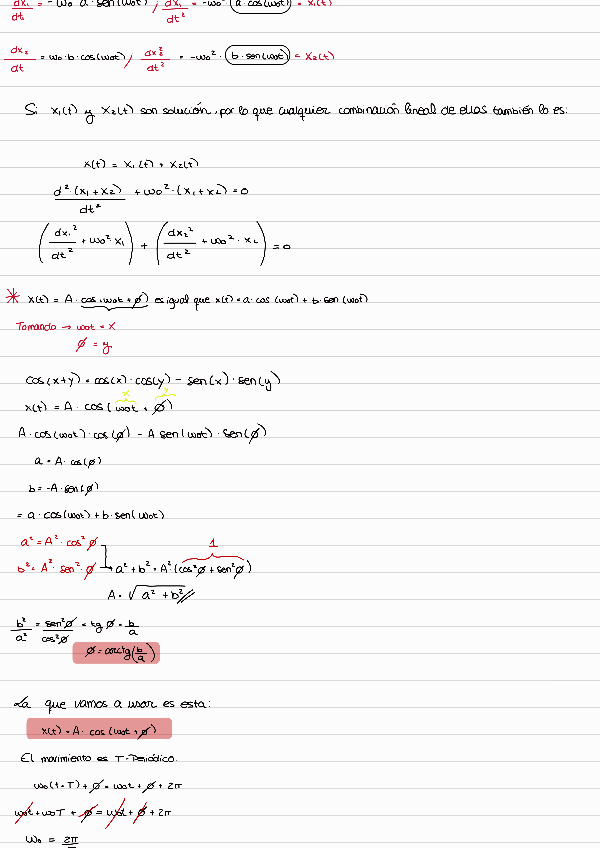 dx₁/dt = -ω₀·a·sen(ω₀t) / dx₁²/dt² = -ω₀²·(a·cos(ω₀t)) = x₁(t)
dx₂/dt = ω₀·b·cos(ω₀t) / dx₂²/dt² = -ω₀²·(b·sen(ω₀t)) = x₂(t)
Si x₁(t) y x₂(t) son solución, por lo que cualquier combinación lineal de ellas también lo es:
x(t) = x₁(t) + x₂(t)
d²·(x₁+x₂)/dt² + ω₀²·(x₁+x₂) = 0
(dx₁²/dt² + ω₀²·x₁) + (dx₂²/dt² + ω₀²·x₂) = 0
* x(t) = A·cos(ω₀t+φ) es igual que x(t) = a·cos(ω₀t) + b·sen(ω₀t)
Tomando → ω₀t = x
φ = y
cos(x+y) = cos(x)·cos(y) - sen(x)·sen(y)
x y
x(t) = A·cos(ω₀t + φ)
A·cos(ω₀t)·cos(φ) - A sen(ω₀t)·sen(φ)
a = A·cos(φ)
b = -A·sen(φ)
= a·cos(ω₀t) + b·sen(ω₀t)
a² = A²·cos²φ 1
b² = A²·sen²·φ → a²+b² = A²·(cos²φ + sen²φ)
A = √(a² + b²)//
b²/a² = sen²φ/cos²φ = tgφ = b/a
φ = arctg(b/a)
La que vamos a usar es esta:
x(t) = A·cos(ω₀t+φ)
El movimiento es T-Periódico.
ω₀(t+T) + φ = ω₀t + φ + 2π
ω₀t + ω₀T + φ = ω₀t + φ + 2π
ω₀ = 2π